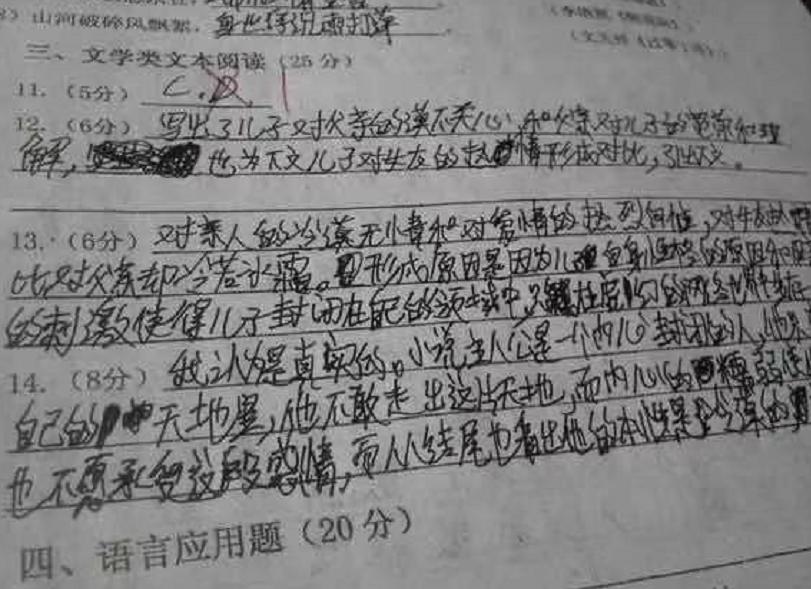 山河破碎风飘絮，身世浮沉雨打萍
三、文学类文本阅读（25分）
11.（5分）C.D
12.（6分）写出了儿子对父亲的漠不关心，和父亲对儿子的宽容和理
解，也为下文儿子对女友的热情形成对比，引出下文。
13.（6分）对亲人的冷漠无情和对爱情的热烈向往，对女友
比对父亲却冷若冰霜。形成原因是因为儿子自身性格的原因和
的刺激使得儿子封闭在自己的领域中
14.（8分）我认为是真实的。小说主人公是一个内心封闭的人，他
自己的天地里，他不敢走出这片天地，而内心的懦弱使
他不愿承受这段感情，而从结尾也看出他的本性是冷漠的
四、语言应用题（20分）